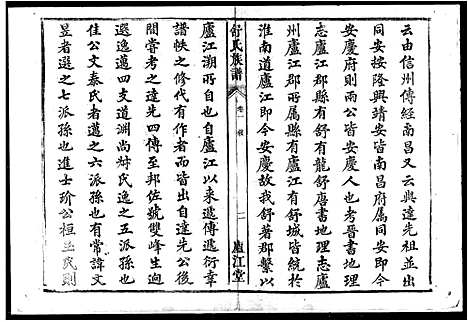 云由信州傳經南昌又云與達先祖並出
同安按隆興靖安皆南昌府屬同安即今
安慶府則兩公皆安慶人也考晉書地理
志廬江郡縣有舒有龍舒唐書地理志廬
州廬江郡所屬縣有廬江有舒城皆統於
淮南道廬江即今安慶故我舒著郡繫以
舒氏族譜
卷一
二
廬江堂
廬江溯所自也自廬江以來遞傳遞衍章
譜帙之修代有作者而皆出自達先公後
間嘗考之達先四傳至邦佐號雙峰生迥
選逸遵四支道淵尚炓氏逸之五派孫也
佳公文泰氏者遵之六派孫也有常諱文
昱者選之七派孫也進士玠公桓玉氏則